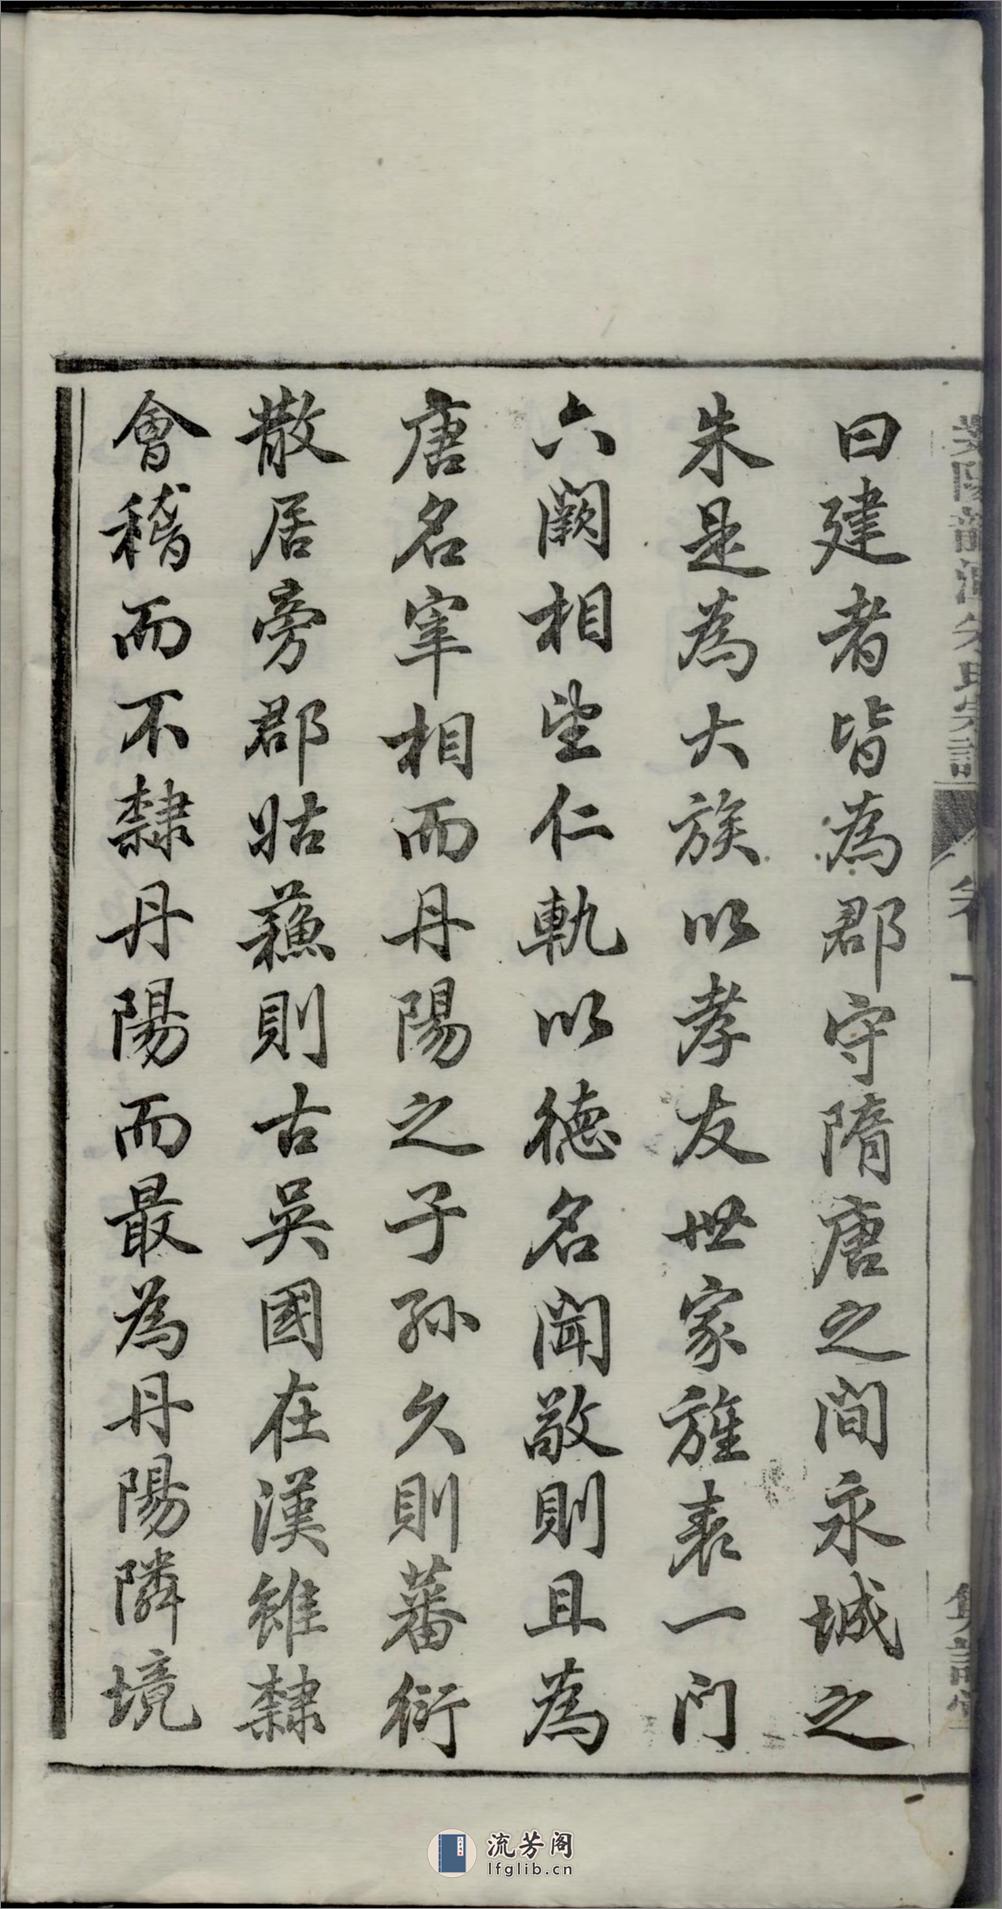 曰建者皆為郡守隋唐之間永城之
朱是為大族以孝友世家旌表一門
六闕相望仁軌以德名聞敬則且為
唐名宰相而丹陽之子孫久則蕃衍
散居旁郡姑蘓則古吳國在漢雖隸
會稽而不隸丹陽而最為丹陽隣境
流芳阁
lfglib.cn